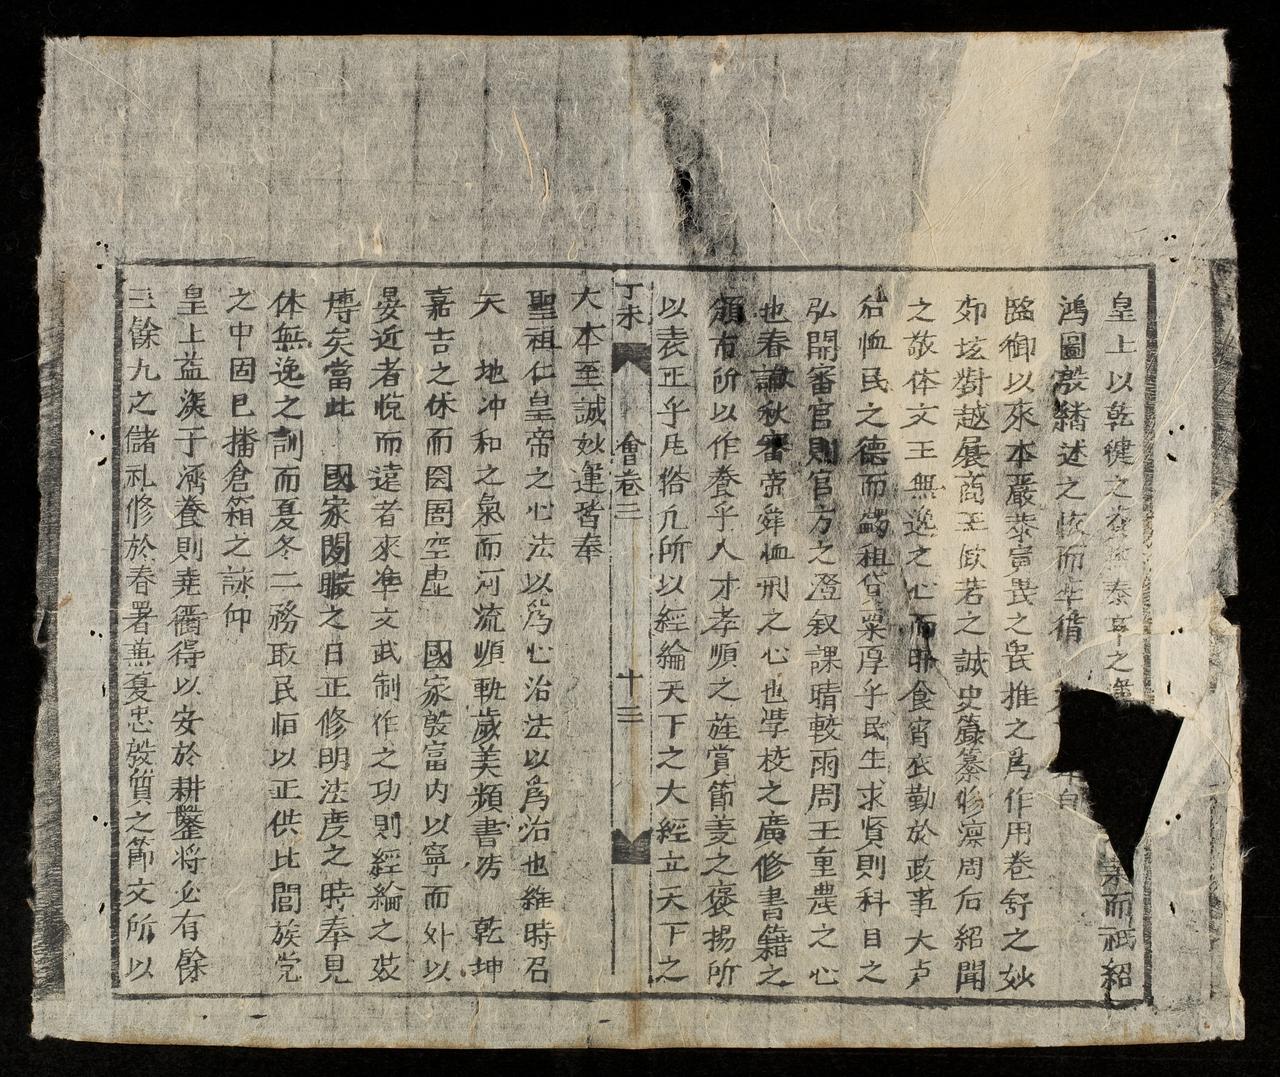 皇上以乾健之泰亨之業而祇紹
鴻圖殷繙述之恢而率循自
臨御以來本嚴恭寅畏之畏推之爲作用卷舒之妙
郊垓對越展商王欽若之誠史籙纂修凛周后紹聞
之敬体文王無逸之心而昃食宵衣勤於政事大卢
佁恤民之德而蠲租貸粟厚乎民生求贤則科目之
弘開審官則官方之澄叙課晴較雨周王重農之心
也春讞秋審帝舜恤刑之心也學校之廣修書籍之
頒市所以作養乎人才孝順之旌賞節義之褒揚所
以表正乎凡俗凢所以經綸天下之大經立天下之
丁未 會卷三 十三
大本至誠妙運皆奉
聖祖仁皇帝之心法以爲心治法以爲治也維時召
天 地冲和之氣而河流順軌歲美頻書淸 乾坤
嘉吉之休而囹圄空虛 國家殷富内以寧而外以
晏近者悅而遠者來凖文武制作之功則經綸之蓺
慱矣當此 國家閑暇之日正修明法度之時奉見
休無逸之訓而夏冬二務取民恒以正供比閭族党
之中固已播倉箱之詠仰
皇上益深于濟養則堯衢得以安於耕鑿將必有餘
三餘九之儲礼修於春署蕪夏忠殷質之節文所以